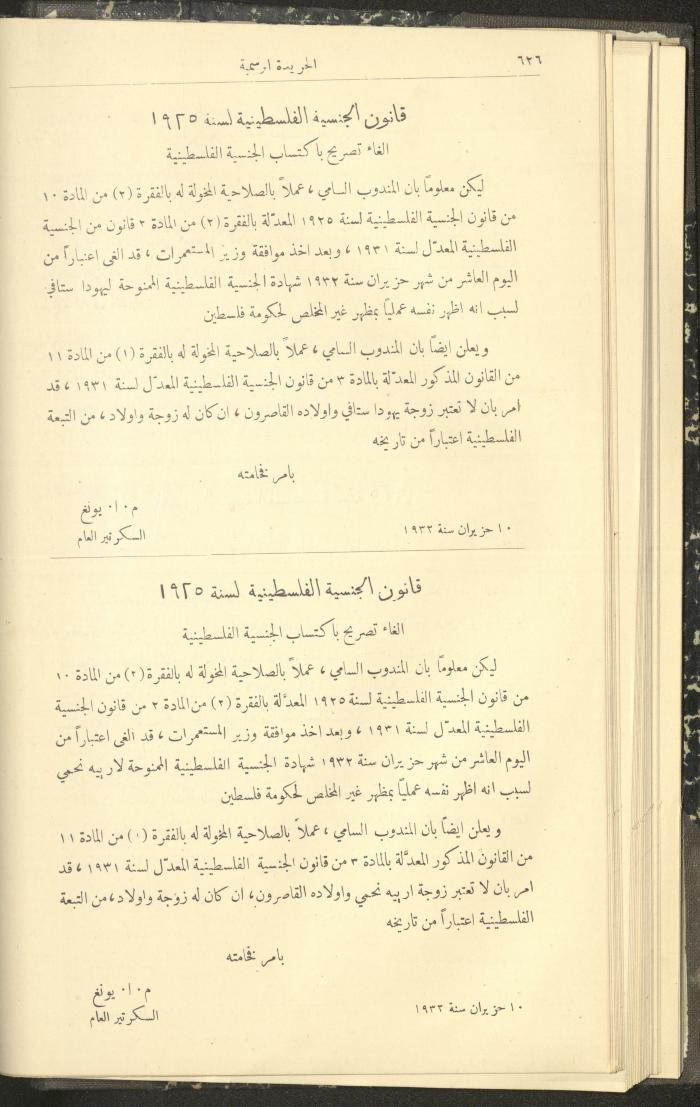 ٦٢٦
الجريدة الرسمية
قانون الجنسية الفلسطينية لسنة ١٩٢٥
الغاء تصريح باكتساب الجنسية الفلسطينية
ليكن معلومًا بان المندوب السامي ، عملاً بالصلاحية المخولة له بالفقرة (٢) من المادة ١٠
من قانون الجنسية الفلسطينية لسنة ١٩٢٥ المعدّلة بالفقرة (٢) من المادة ٢ قانون من الجنسية
الفلسطينية المعدّل لسنة ١٩٣١ ، وبعد اخذ موافقة وزير المستعمرات ، قد الغى اعتباراً من
اليوم العاشر من شهر حزيران سنة ١٩٣٢ شهادة الجنسية الفلسطينية الممنوحة ليهودا ستافي
لسبب انه اظهر نفسه عمليًا بمظهر غير المخلص لحكومة فلسطين
ويعلن ايضًا بان المندوب السامي ، عملاً بالصلاحية المخولة له بالفقرة (١) من المادة ١١
من القانون المذكور المعدّلة بالمادة ٣ من قانون الجنسية الفلسطينية المعدّل لسنة ١٩٣١ ، قد
امر بان لا تعتبر زوجة يهودا ستافي واولاده القاصرون ، ان كان له زوجة واولاد ، من التبعة
الفلسطينية اعتباراً من تاريخه
بامر فخامته
م ٠ ا ٠ يونغ
السكرتير العام
١٠ حزيران سنة ١٩٣٢
قانون الجنسية الفلسطينية لسنة ١٩٢٥
الغاء تصريح باكتساب الجنسية الفلسطينية
ليكن معلومًا بان المندوب السامي ، عملاً بالصلاحية المخولة له بالفقرة (٢) من المادة ١٠
من قانون الجنسية الفلسطينية لسنة ١٩٢٥ المعدّلة بالفقرة (٢) من المادة ٢ من قانون الجنسية
الفلسطينية المعدّل لسنة ١٩٣١ ، وبعد اخذ موافقة وزير المستعمرات ، قد الغى اعتباراً من
اليوم العاشر من شهر حزيران سنة ١٩٣٢ شهادة الجنسية الفلسطينية الممنوحة لاربيه نحمي
لسبب انه اظهر نفسه عمليًا بمظهر غير المخلص لحكومة فلسطين
ويعلن ايضًا بان المندوب السامي ، عملاً بالصلاحية المخولة له بالفقرة (١) من المادة ١١
من القانون المذكور المعدّلة بالمادة ٣ من قانون الجنسية الفلسطينية المعدّل لسنة ١٩٣١ ، قد
امر بان لا تعتبر زوجة اربيه نحمي واولاده القاصرون، ان كان له زوجة واولاد ، من التبعة
الفلسطينية اعتباراً من تاريخه
بامر فخامته
م ٠ ا ٠ يونغ
السكرتير العام
١٠ حزيران سنة ١٩٣٢